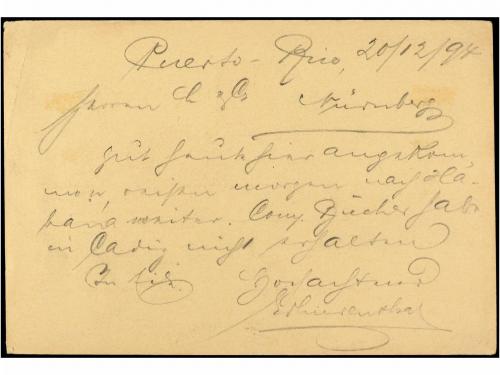 Puerto-Rico, 20/12/94
Herren C & Co Nürnberg
gut heute hier angekom
men reisen morgen nach Ha-
bana weiter. Com. Bücher habe
in Cadiz nicht erhalten
Hochachtend